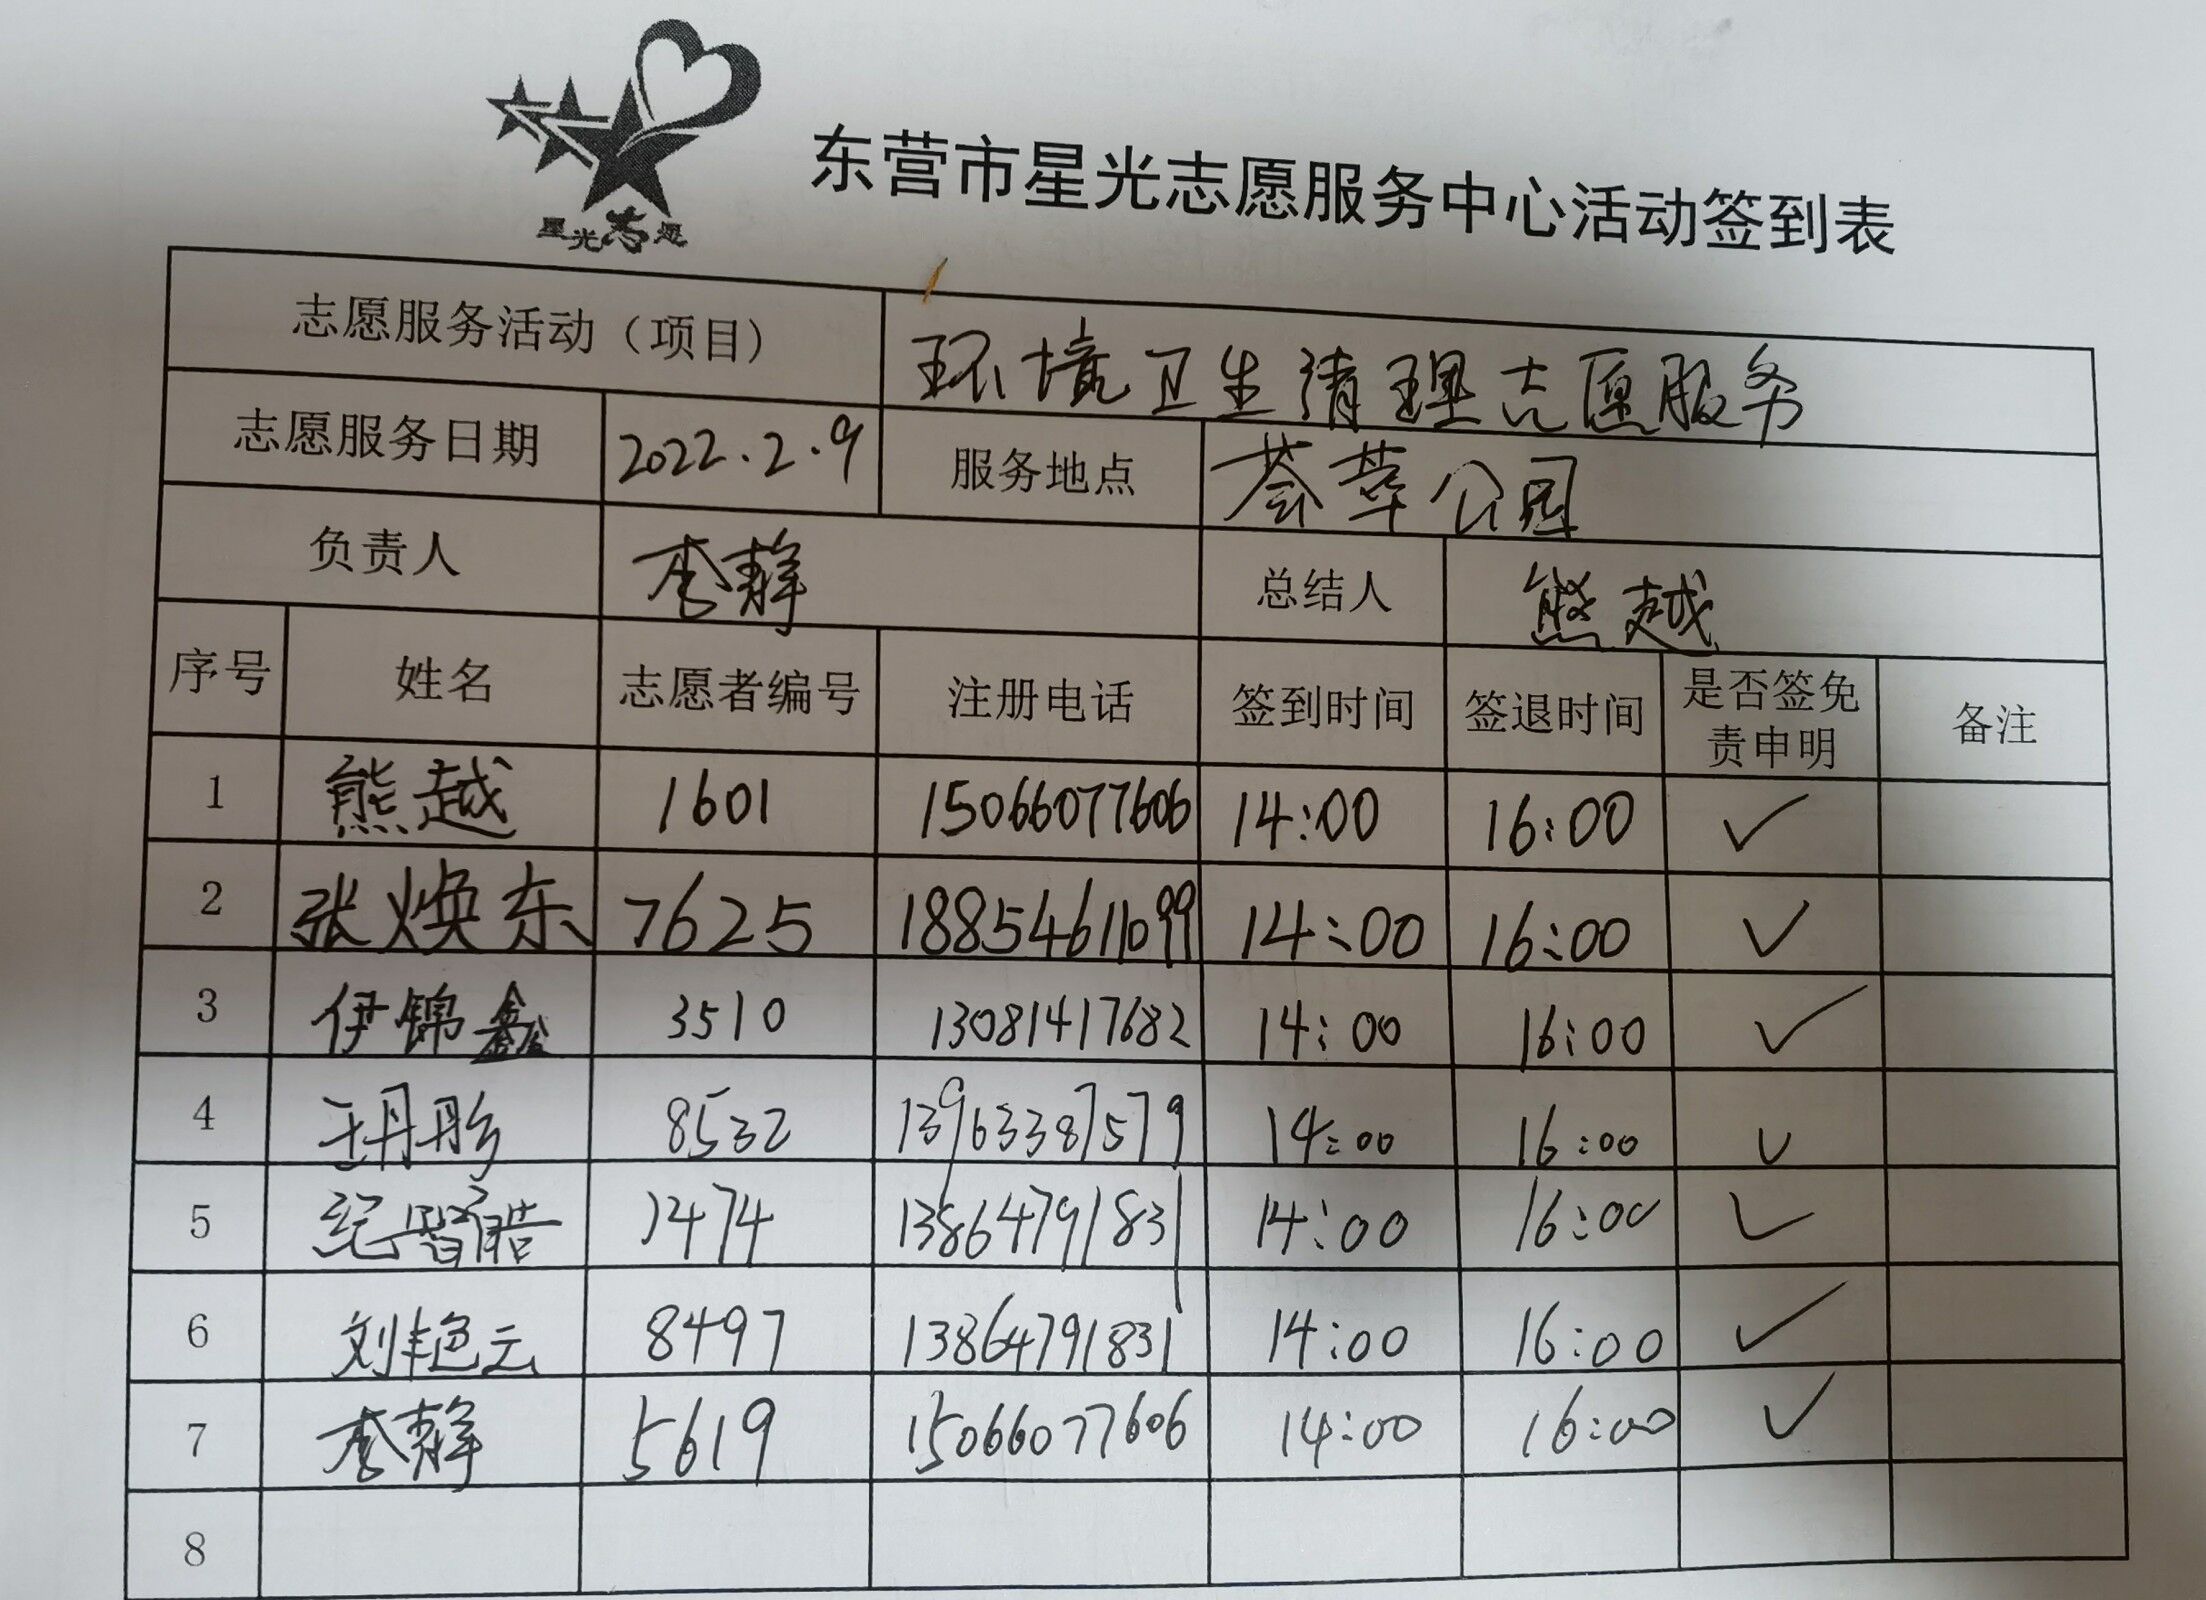 星光志愿
东营市星光志愿服务中心活动签到表
志愿服务活动（项目） 环境卫生清理志愿服务
志愿服务日期 2022.2.9 服务地点 荟萃公园
负责人 李静 总结人 熊越
序号 姓名 志愿者编号 注册电话 签到时间 签退时间 是否签免责申明 备注
1 熊越 1601 15066077606 14:00 16:00 ✓
2 张焕东 7625 18854611099 14:00 16:00 ✓
3 伊锦鑫 3510 13081417682 14:00 16:00 ✓
4 王丹彤 8532 13963387579 14:00 16:00 ✓
5 纪智皓 7474 13864791831 14:00 16:00 ✓
6 刘艳云 8497 13864791831 14:00 16:00 ✓
7 李静 5619 15066077606 14:00 16:00 ✓
8